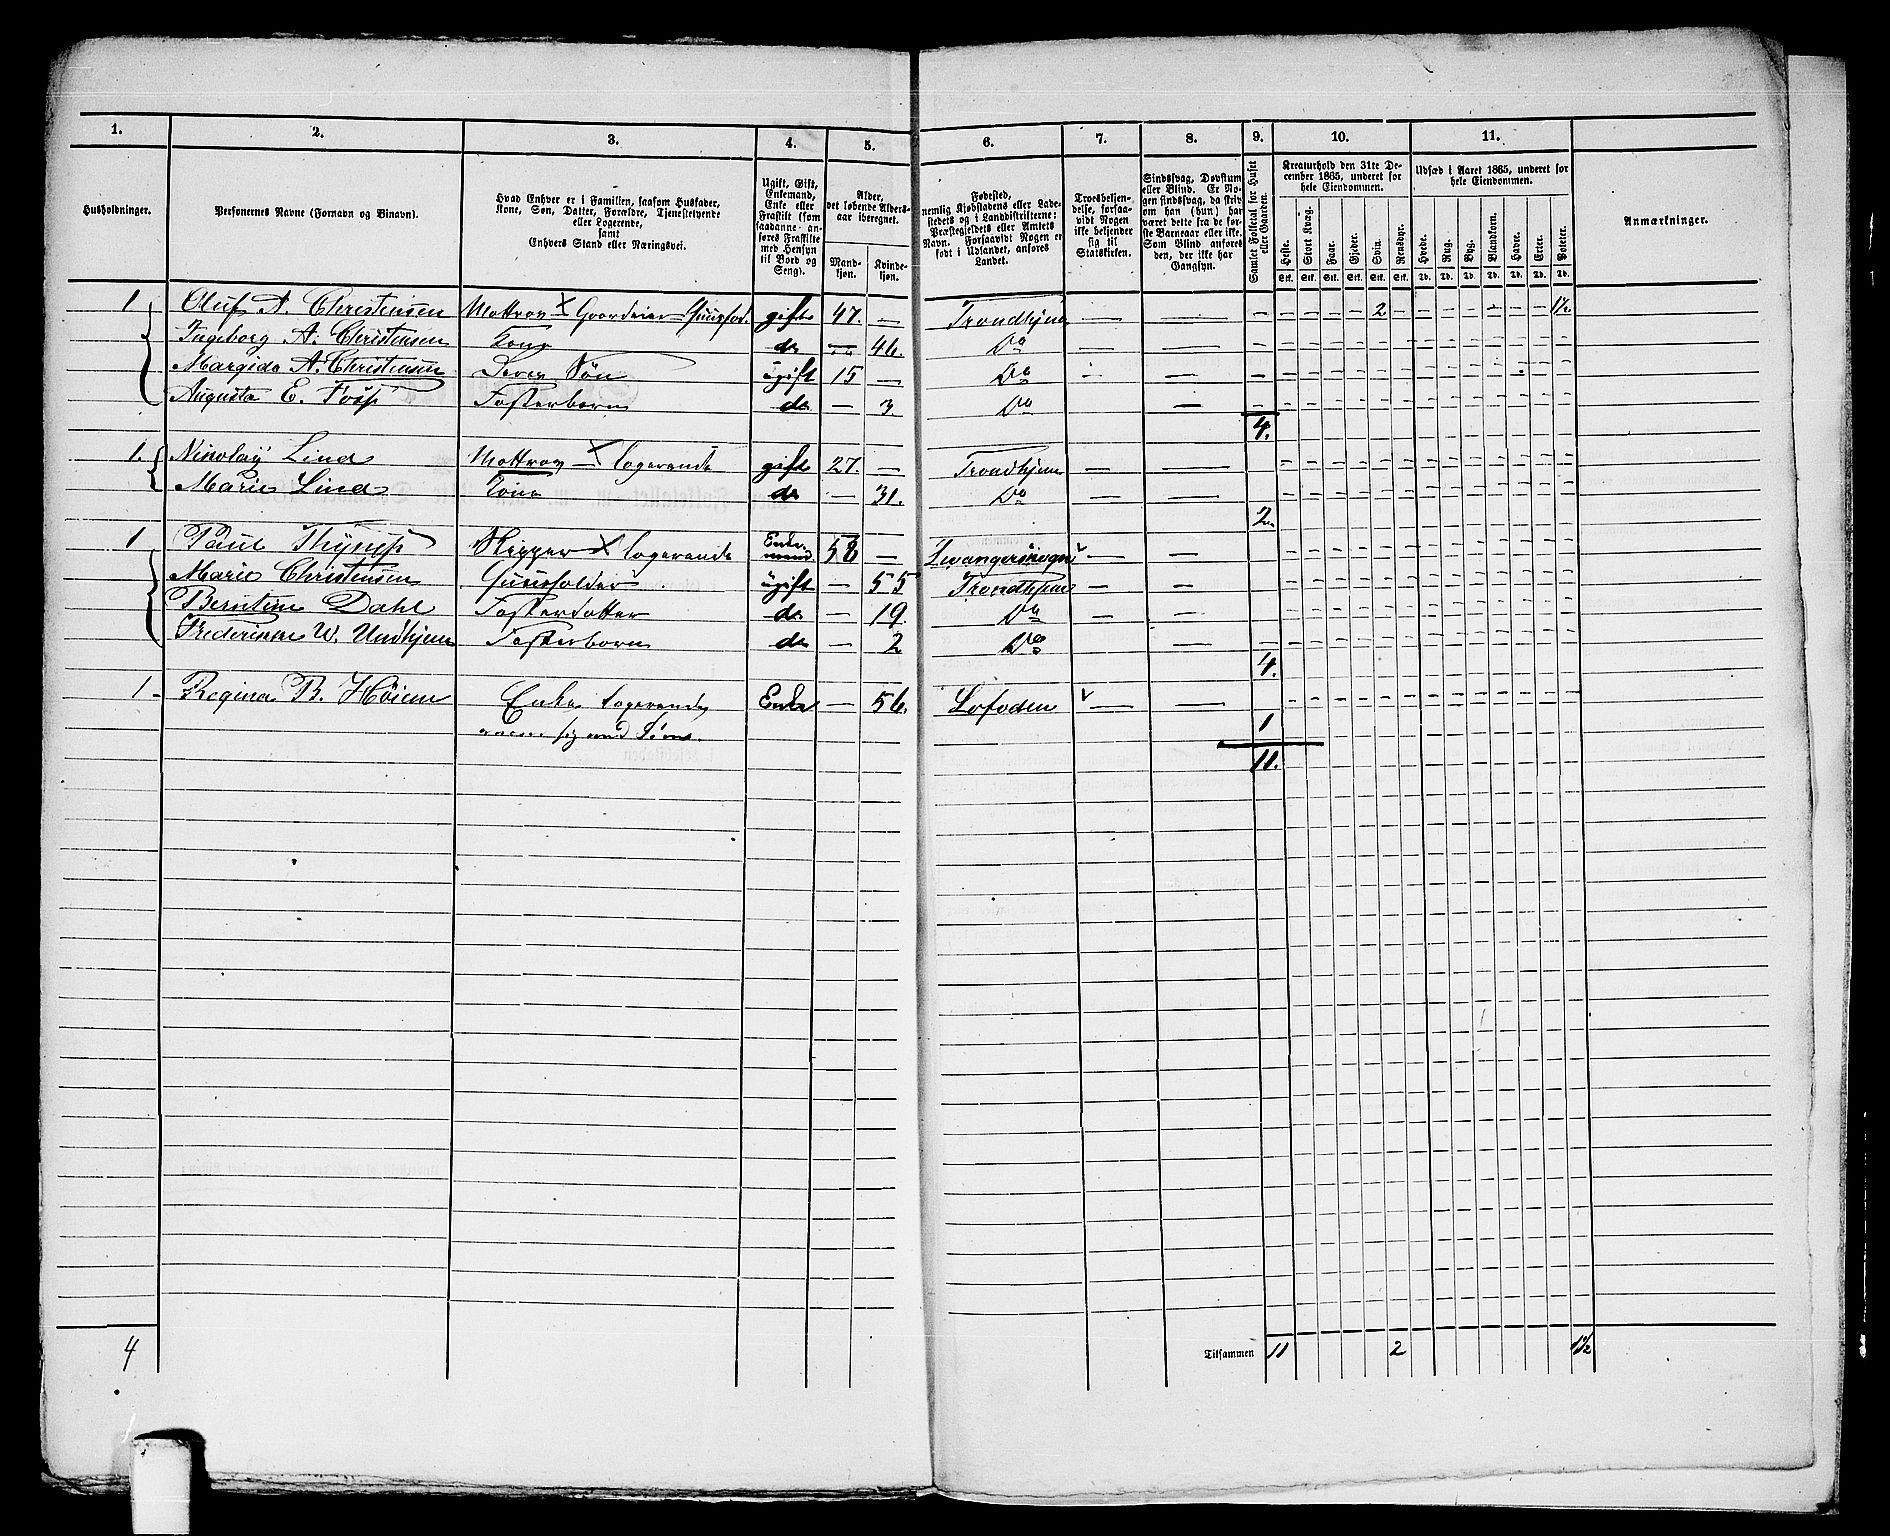 1. 2. 3. 4. 5. 6. 7. 8. 9. 10. 11.
Husholdninger.
Personernes Navne (Fornavn og Binavn).
Hvad Enhver er i Familien, saasom Husfader,
Kone, Søn, Datter, Forældre, Tjenestetyende
eller Logerende,
samt
Enhvers Stand eller Næringsvei.
Ugift, Gift,
Enkemand,
Enke eller
Fraskilt (som
saadanne anføres
Fraskilte
med Hensyn
til Bord og
Seng).
Alder,
det løbende Aldersaar
iberegnet.
Mandkjøn.
Kvindekjøn.
Fødested,
nemlig Kjøbstadens eller Ladestedets
og i Landdistrikterne:
Præstegjeldets eller Amtets
Navn. Forsaavidt Nogen er
født i Udlandet, anføres
Landet.
Troesbekjendelse,
forsaavidt
Nogen
ikke bekjender
sig til
Statskirken.
Sindssvag, Døvstum
eller Blind. Er Nogen
sindssvag, da skriv
om han (hun) har
været dette fra de første
Barneaar eller ikke.
Som Blind anføres
den, der ikke har
Gangsyn.
Samlet Folketal for Huset
eller Gaarden.
Kreaturhold den 31te December
1865, underet for
hele Eiendommen.
Heste. Stort Kvæg. Faar. Gjeder. Svin. Rensdyr.
Stk. Stk. Stk. Stk. Stk. Stk.
Udsæd i Aaret 1865, underet for
hele Eiendommen.
Hvede. Rug. Byg. Blandkorn. Havre. Erter. Poteter.
Td. Td. Td. Td. Td. Td. Td.
Anmærkninger.
1. Oluf A. Christensen gift 47. — Trondhjem — — 2 1½
Ingeborg A. Christensen Kone do — 46. Do
A. Christensen Søn ugift 15 — Do
Augusta E. Fosterbarn do — 3 Do
4.
1. Nicolay Lind Mattros X logerende gift 27. — Trondhjem
Marie Lind Kone do — 31. Do
2
1 Paul Skipper X logerende Enkemand 58 —
Marie Christensen Huusholder ugift — 55 Trondhjem
Berntine Dahl Fosterdatter do — 19. Do
W. Undhjem Fosterbarn do — 2 Do
4.
1 - Regina B. Høiem Enke logerende Enke — 56. Lofoden
sig med
1
11.
4
Tilsammen 11 2 1½